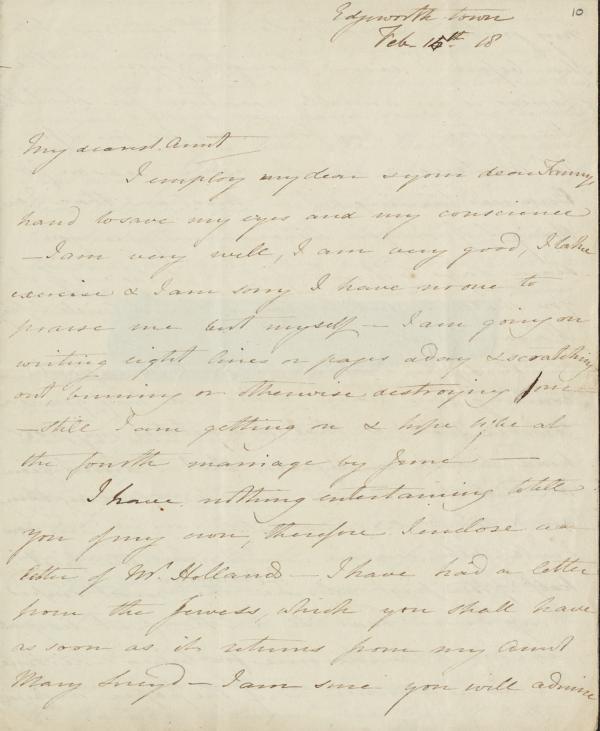 10
Edgworth town
Feb 15th 18
My dearest Aunt
I employ my dear & your dear Fanny's
hand to save my eyes and my conscience
- I am very well, I am very good, I take
exercise & I am sorry I have no one to
praise me but myself - I am going on
writing eight lines or pages a day & scratching
out, burning or otherwise destroying
- still I am getting on & hope to be at
the fourth marriage by June -
I have nothing entertaining to tell
you of my own, therefore I enclose a
letter of Mr. Holland - I have had a letter
from the Jewess, which you shall have
as soon as it returns from my Aunt
Mary Sneyd - I am sure you will admire